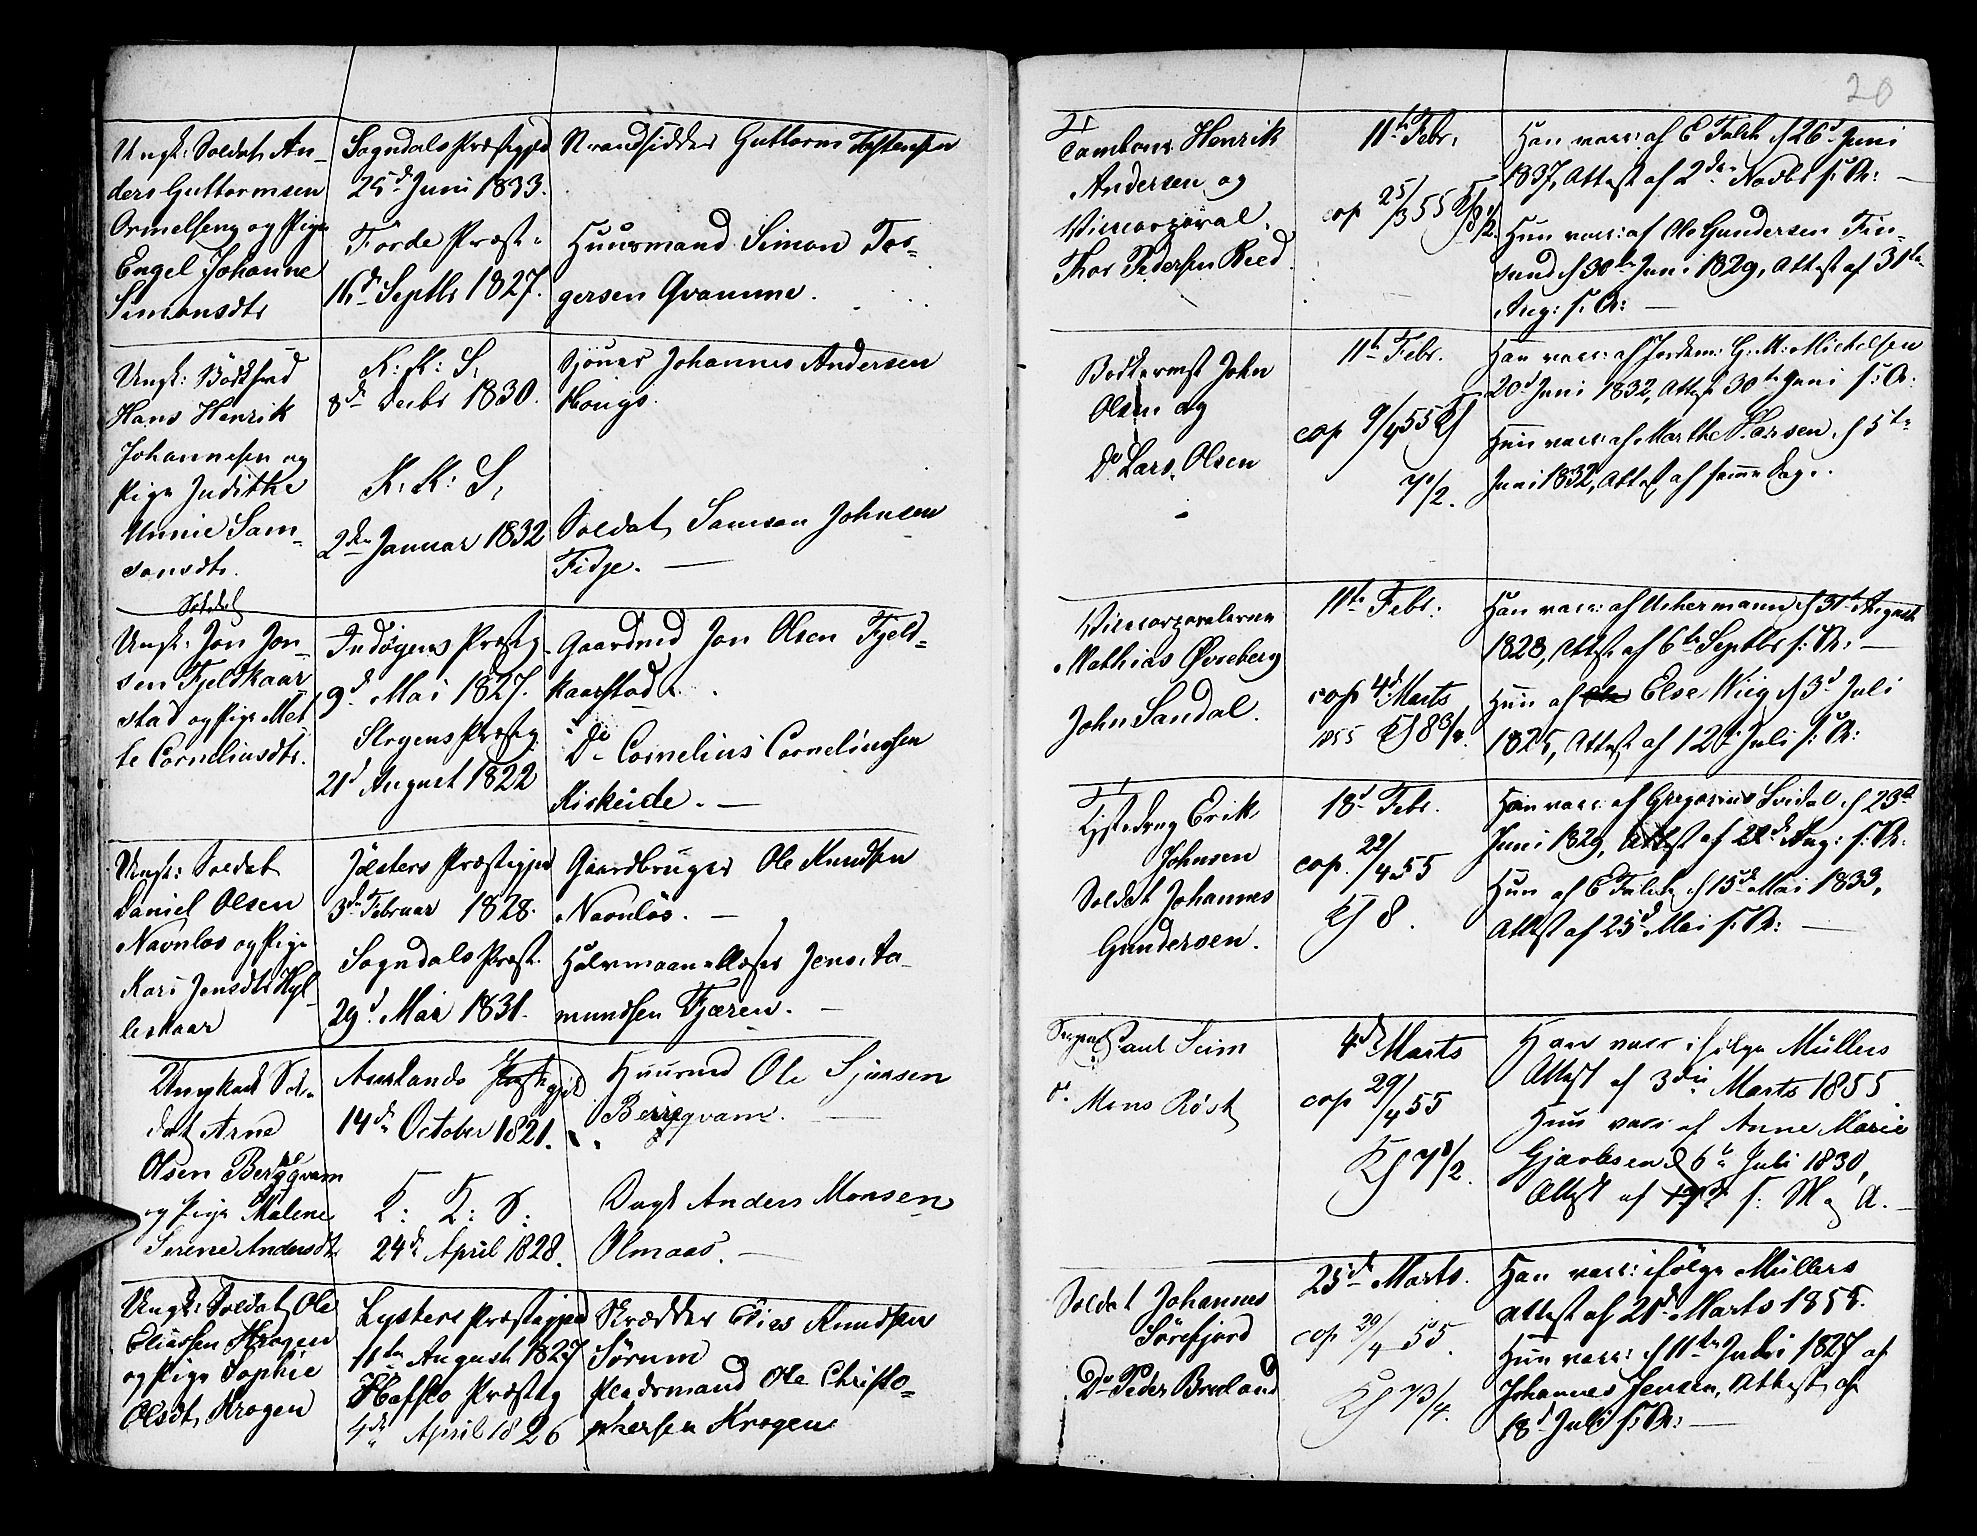 20
Ungk: Soldat An-
ders Guttormsen
Ormelseng og Pige
Engel Johanne
Simonsdtr
Sogndals Præstegjed
25d Juni 1833.
Förde Præst-
16d Septbr 1827.
Strandsidder Guttorm
Huusmand Simon Tor-
gersen Qvamme.
Ungk: Bödksvd
Hans Henrik
Johannesen og
Pige Judithe
Unnie Sam-
sonsdtr.
K: K: S,
8de Decbr 1830.
K: K: S,
2den Januar 1832
Johannes Andersen
Hougs.
Soldat Samson Johnsen
Fidje. —
Soldat
Ungk: Jon Jon-
sen Fjeldkaar
stad og Pige Met
te Corneliusdtr.
Indvigens Præstg
9d Mai 1827.
Strgens Præstg
21d August 1822
Gaardmd Jon Olsen Fjeld-
kaarstad.
Do Cornelius Corneliussen
Riskeide. —
Ungk: Soldat
Daniel Olsen
Navnlos og Pige
Kari Jensdtr Hyl-
leskaar
Jölsters Præstegjed
3de Februar 1828.
Sogndals Præst.
29d Mai 1831.
Gaardbruger Ole Knudsen
Navnlös. —
Jens Aa-
mundsen Fjæren. —
Ungkarl Sol-
dat Arne
Olsen Berggvam
og Pige Malene
Serene Andersdtr
Aurlands Præstegjed
14de October 1821.
K: K: S:
24de April 1828.
Huusmd Ole Sjursen
Berggvam. —
Dagk Anders Monsen
Olmaas. —
Ungk: Soldat Ole
Eliassen Krogen
og Pige Sophie
Olsdtr Krogen
Lysters Præstegjed
11te August 1827
Hafslo Præsteg
4de April 1826
Skrædder Elias Knudsen
Sörum
Pladsmand Ole Christo-
phersen Krogen
Tambour Henrik
Andersen og
Vicecorporal
Thor Pedersen Reed.
11te Febr.
cop 25/3 55
Han vacc: af C Falch d 26d Juni
1837, Attest af 2den Novbr s: A: —
Hun vacc: af Ole Gundersen Fin-
sund d 30te Juni 1829, Attest af 31te
Aug: s: A: —
Bödkermst John
Olsen og
Do Lars Olsen
11te Febr.
cop 9/4 55
Han vacc: af Jordem: G: M: Michelsen
20d Juni 1832, Attest 30te Juni s: A:
Hun vacc: af Marthe Larsen, d 5te
Juni 1832, Attest af samme Dag.
Vicecorporalerne
Mathias Øvreberg
John Sandal.
11te Febr:
cop 4d Marts
1855
Han vacc: af Uchermann d 31te August
1828, Attest af 6te Septbr s: A: —
Hun af Else Wiig d 3d Juli
1825, Attest af 12te Juli s: A:
Erik
Johnsen
Soldat Johannes
Gundersen.
18d Febr.
cop. 22/4 55
8.
Han vacc: af Gregorius Svidal d 23d
Juni 1829, Attest af 22de Aug: s: A:
Hun af C Falch d 15de Mai 1833,
Attest af 25d Mai s: A: —
Paul Seim
do Mons Röst
4de Marts
cop 29/4 55
Han vacc ifölge Müllers
Attest af 3die Marts 1855.
Hun vacc af Anne Marie
Gjarlesen d 6te Juli 1830,
Attest af s: M og A. —
Soldat Johannes
Sörefjord
Do Peder Breland
25de Marts.
cop 29/4 55.
Han vacc: ifölge Müllers
Attest af 21de Marts 1855.
Hun vacc: d 11te Juli 1827 af
Johannes Jensen, Attest af
18d Juli s: A: —